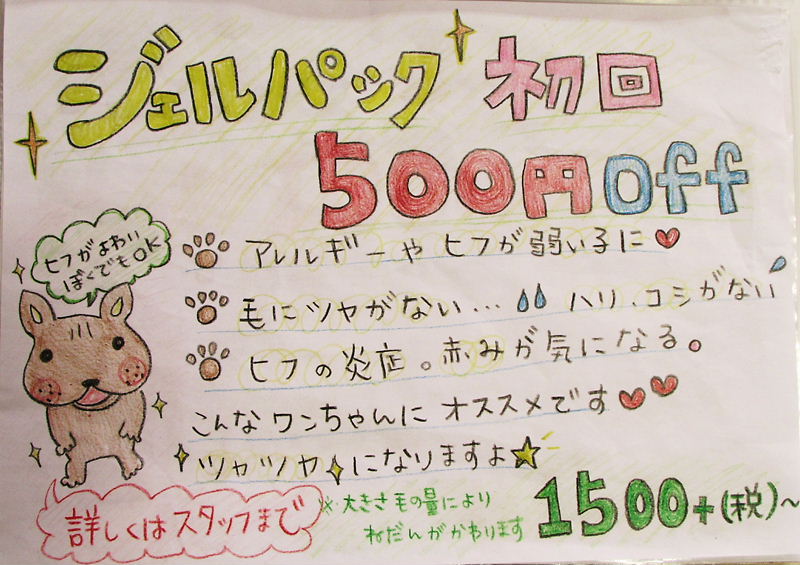 ジェルパック 初回
500円Off
ヒフがよわい
ぼくでもOK
アレルギーや ヒフが弱い子に
毛にツヤがない… ハリ、コシがない
ヒフの炎症。赤みが気になる。
こんなワンちゃんに オススメです
ツヤツヤ になりますよ
詳しくはスタッフまで
※大きさ毛の量により
ねだんがかわります
1500+(税)~